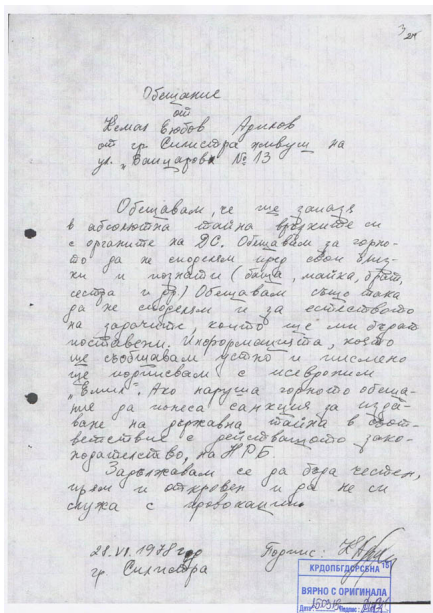 3
24
Обещание
от
Кемал Еюбов
от гр. Силистра живущ на
ул. „Вапцаров" № 13
Обещавам, че ще запазя
в абсолютна тайна връзките си
с органите на ДС. Обещавам за горно-
то да не споделям пред свои близ-
ки и познати (баща, майка, брат,
сестра и др) Обещавам също така
да не споделям и за естеството
на задачите, които ще ми бъдат
поставени. Информацията, която
ще съобщавам устно и писмено
ще подписвам с псевдоним
„Емил". Ако наруша горното обеща-
ние да понеса санкция за изда-
ване на държавна тайна в съот-
ветствие с действащото зако-
нодателство, на НРБ.
Задължавам се да бъда честен,
прям и откровен и да не си
служа с провокации.
28.VI.1978 год Подпис:
гр. Силистра
КРДОПБГДРСБНА
ВЯРНО С ОРИГИНАЛА
Дата Подпис: